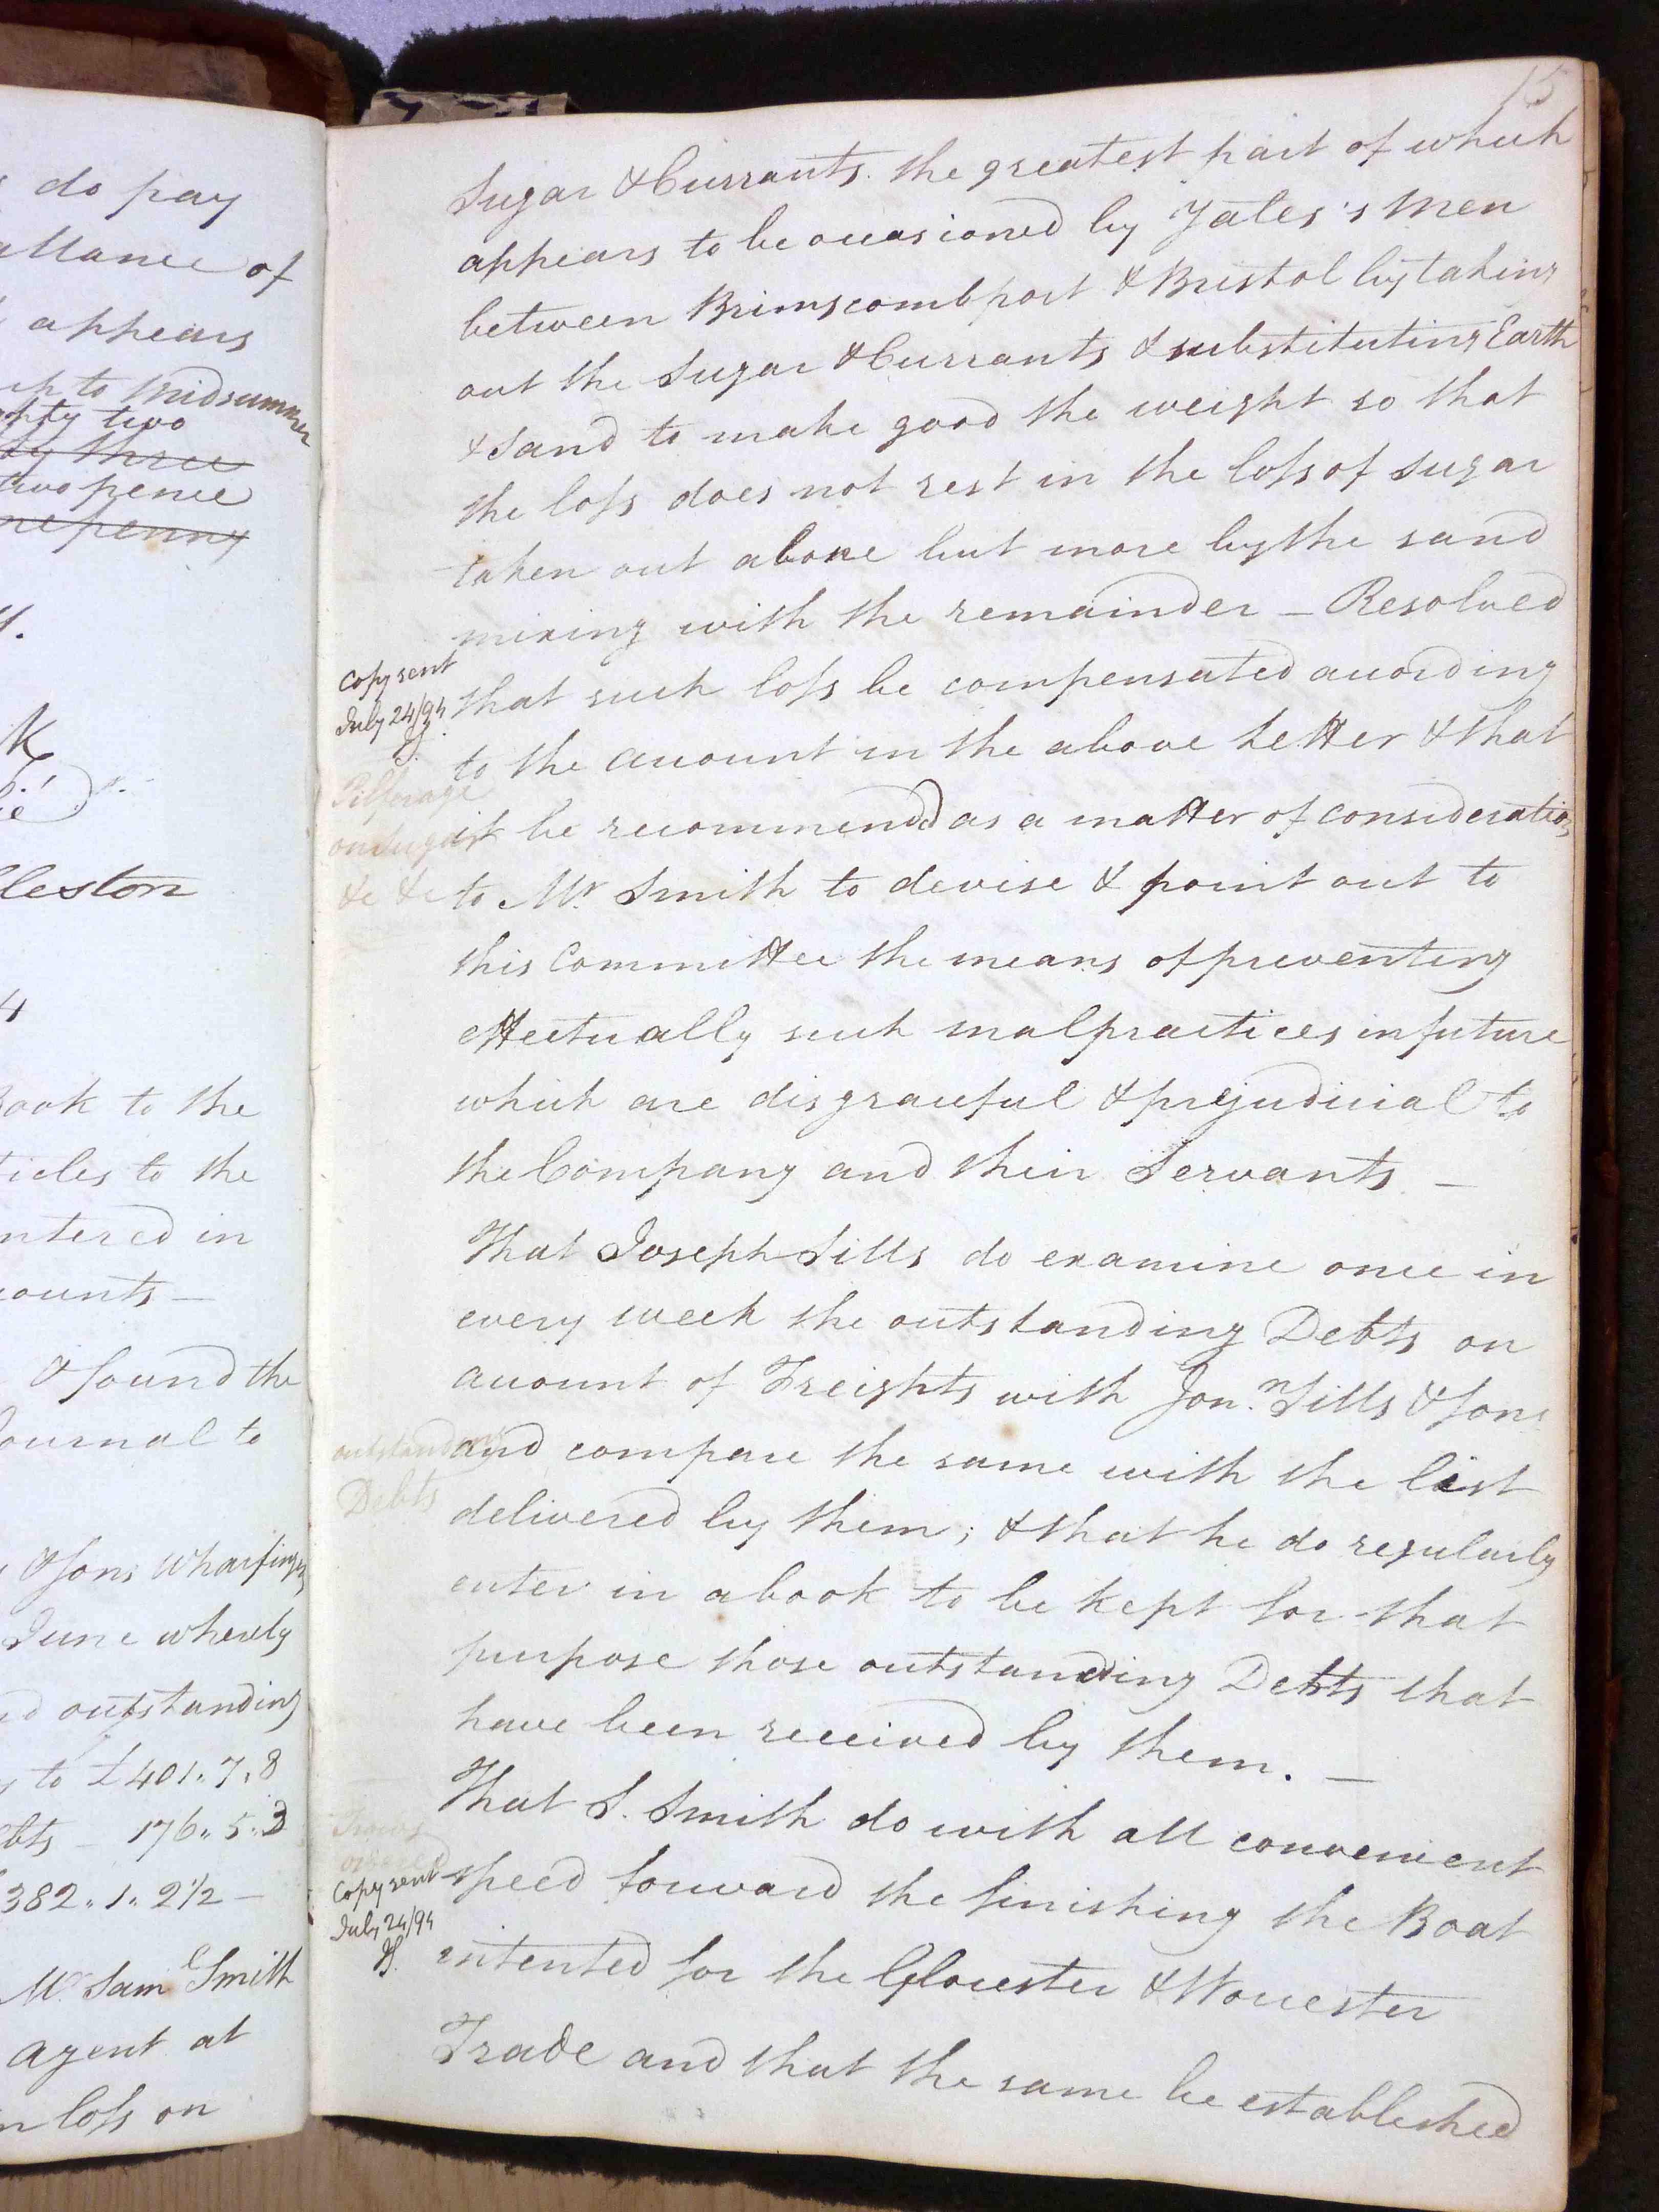 do pay
of
appears
to Midsummer
two
three
twopence
penny
4
Book to the
to the
entered in
& found the
Journal to
& Sons Wharfingers
June whereby
outstanding
to £401,, 7,, 8
176,, 5,, 3
382,, 1,, 2½ —
Mr. Saml Smith
agent at
loss on
15
Sugar & Currants. the greatest part of which
appears to be occasioned by Yates's Men
between Brimscombport & Bristol by taking
out the Sugar & Currants & substituting Earth
& Sand to make good the weight so that
the loss does not rest in the loss of Sugar
taken out alone but more by the sand
mixing with the remainder — Resolved
Copy sent
July 24/94
that such loss be compensated according
to the account in the above Letter & that
Pilferage
on Sugar
&c &c
it be recommendd as a matter of consideration
to Mr. Smith to devise & point out to
this Committee the means of preventing
effectually such malpractices in future
which are disgraceful & prejudicial to
the Company and their Servants —
That Joseph Sills do examine once in
every week the outstanding Debts on
account of Freights with Jonn. Sills & Sons
outstanding
Debts
and compare the same with the list
delivered by them; & that he do regularly
enter in a book to be kept for that
purpose those outstanding Debts that
have been received by them. —
That S. Smith do with all convenient
Trows
ordered
Copy sent
July 24/94
speed forward the finishing the Boat
intented for the Glocester & Worcester
Trade and that the same be established